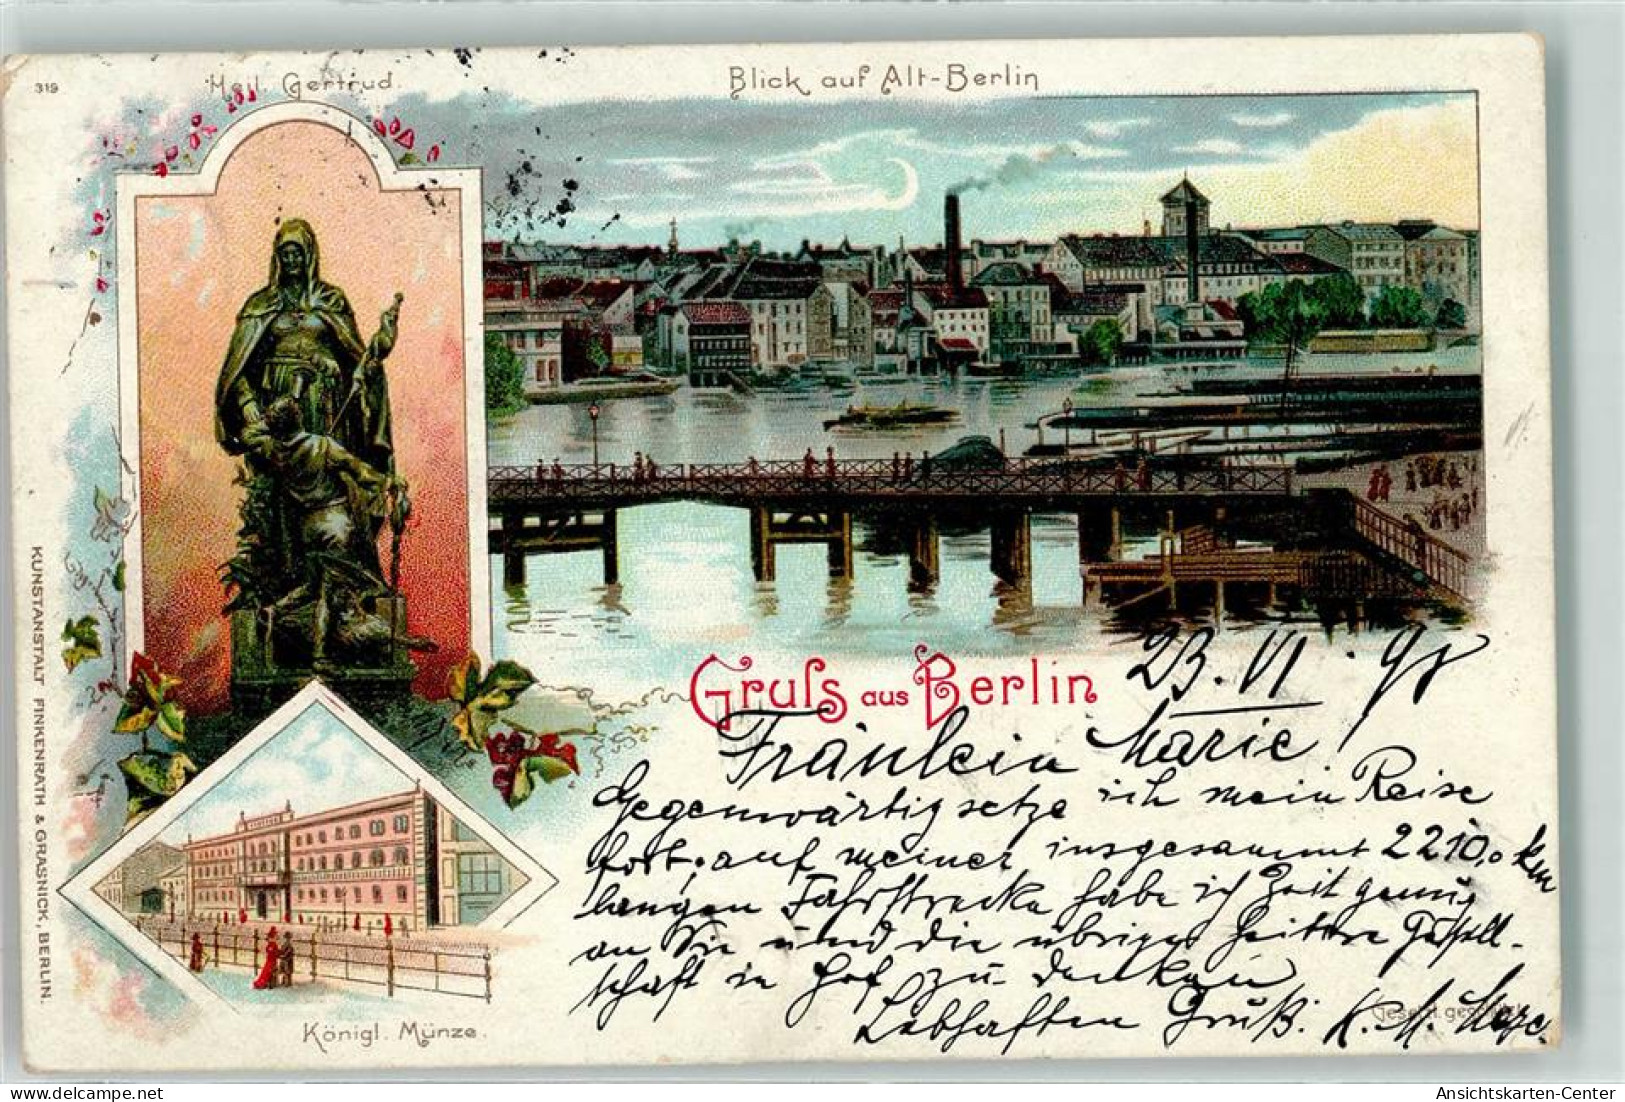 319
Heil. Gertrud.
Blick auf Alt-Berlin
KUNSTANSTALT FINKENRATH & GRASNICK, BERLIN.
Königl. Münze.
Gruſs aus Berlin
23. VI. 98
Fräulein Marie!
Gegenwärtig setze ich mein Reise
fort; auf meiner insgesammt 2210,0 km
langen Fahrstrecke habe ich Zeit genug
an Sie und die übrige heitere Gesell-
schaft in Hof zu denken
Lebhaften Gruß. K. M.
Gesetzl. gesch.
AnsichtsKarten-Center